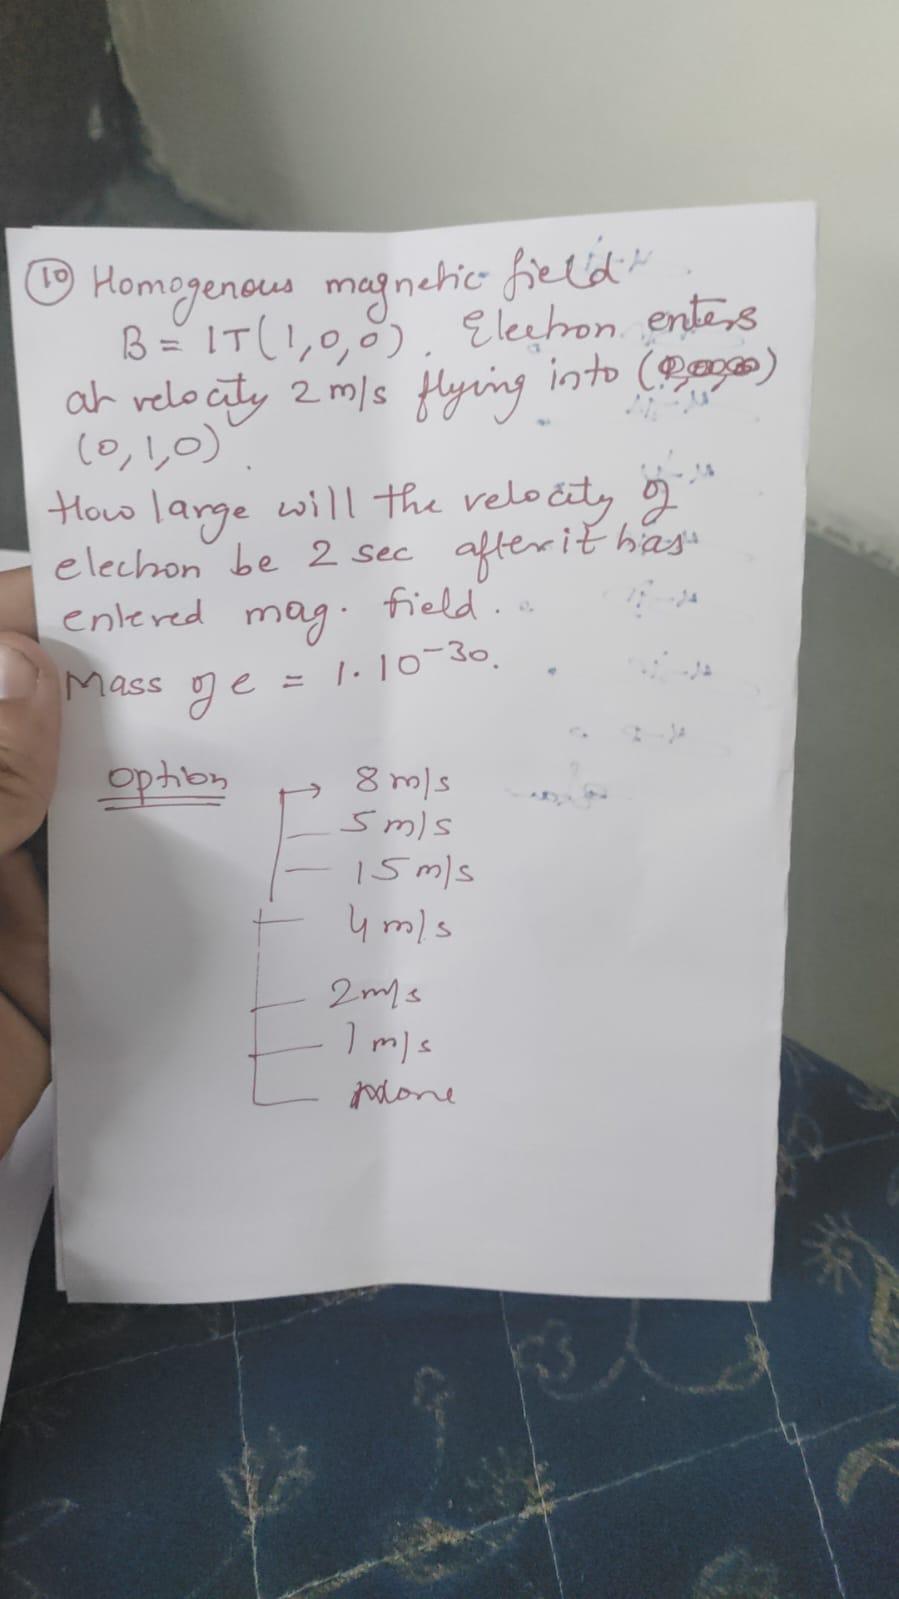 10 Homogenous magnetic field
B = 1T(1,0,0). Electron enters
at velocity 2 m/s flying into ( )
(0,1,0).
How large will the velocity of
electron be 2 sec after it has
entered mag. field.
Mass of e = 1.10-30.
option
→ 8 m/s
5 m/s
15 m/s
4 m/s
2 m/s
1 m/s
None